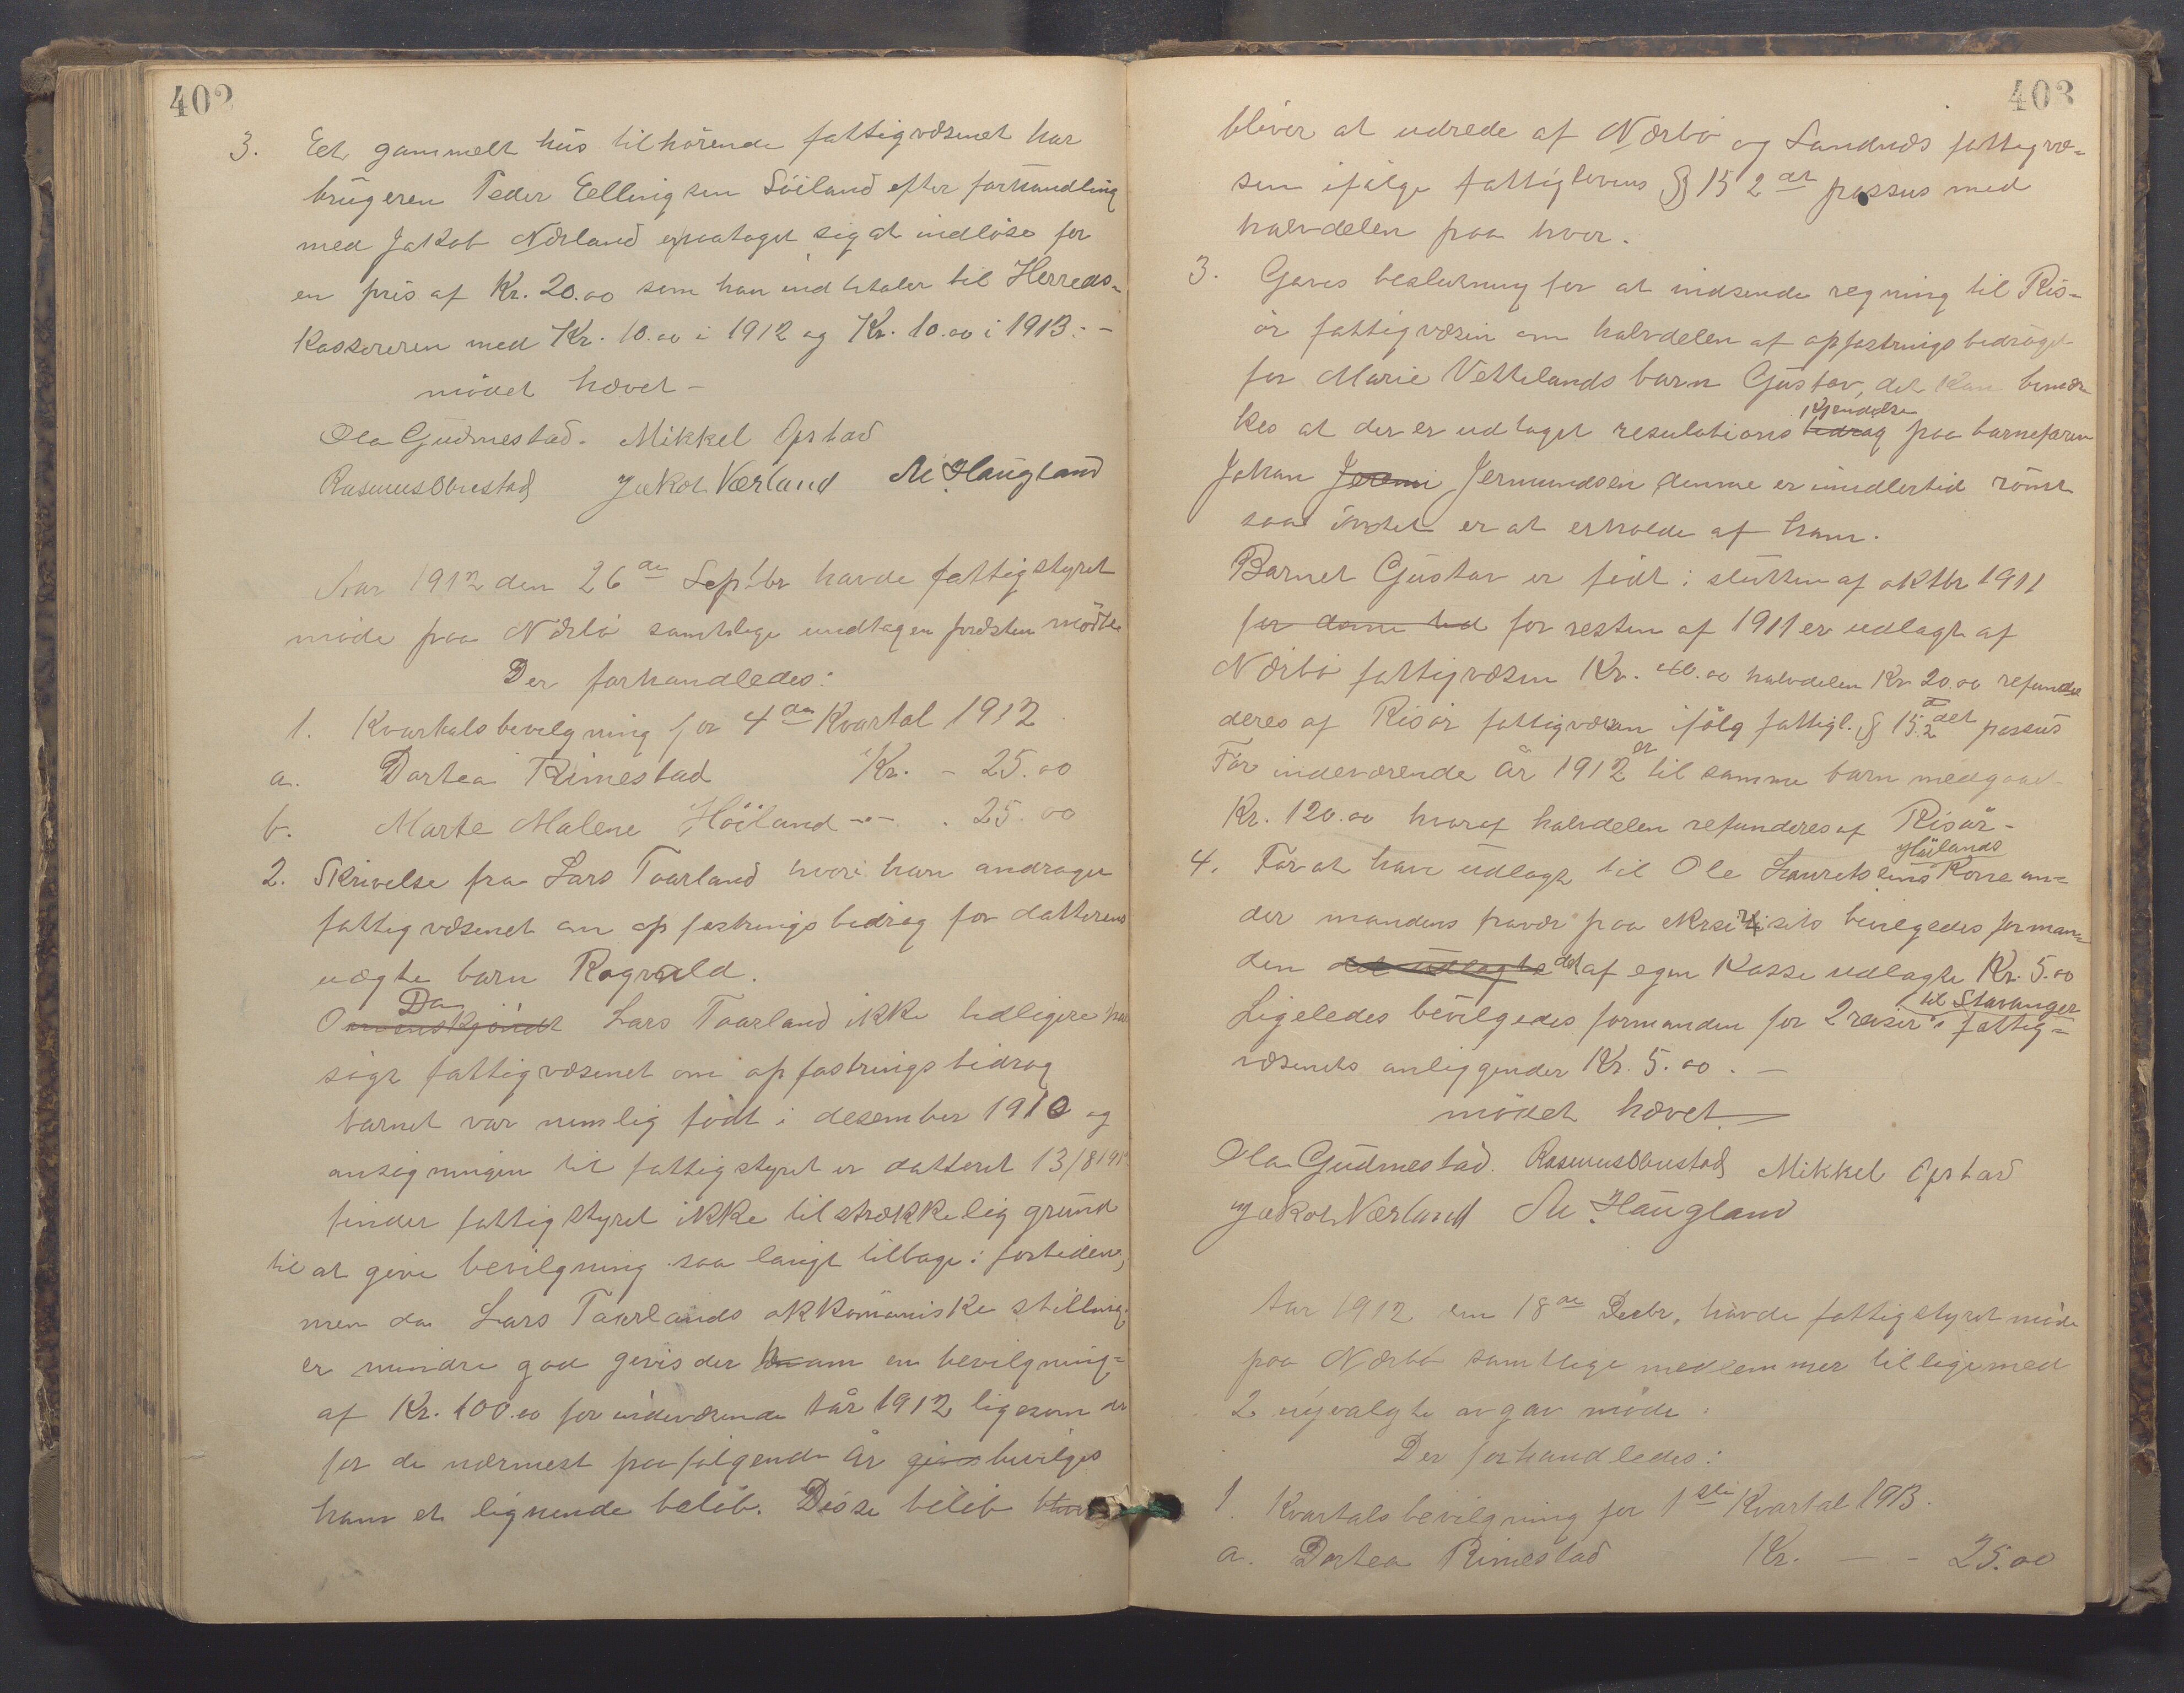 402
3. Eet gammelt hus tilhörende fattigvæsenet har
brugeren Peder Ellingsen Söiland efter forhandling
med Jakob Nærland paataget sig at indlöse for
en pris af Kr. 20.00 som han indbetaler til Herreds-
kassereren med Kr. 10.00 i 1912 og Kr. 10.00 i 1913.-
mödet hævet -
Ola Gudmestad. Mikkel Opstad
Rasmus Obrestad Jakob Nærland M Haugland
Aar 1912 den 26de Septbr havde fattigstyret
möde paa Nærbö samtlige undtagen presten mödte
Der forhandledes:
1. Kvartalsbevilgning for 4de Kvartal 1912
a. Dortea Rimestad Kr. - 25.00
b. Marte Malene Höiland -"- . 25.00
2. Skrivelse fra Lars Taarland hvori han andrager
fattigvæsenet om opfostringsbidrag for datterens
uægte barn Ragnvald.
Da
Omenskjöndt Lars Taarland ikke tidligere har
sögt fattigvæsenet om opfostringsbidrag
barnet var nemlig födt i desember 1910 og
ansögningen til fattigstyret er datteret 13/8 1912
finder fattigstyret ikke tilstrækkelig grund
til at give bevilgning saa langt tilbage i fortiden,
men da Lars Taarlands økkonomiske stilling
er mindre god gives der ham en bevilgning
af Kr. 100.00 for indeværende år 1912 ligesom der
for de nærmest paafölgende år gives bevilges
ham et lignende belöb. Disse belöb
403
bliver at udrede af Nærbö og Sandnæs fattigvæ-
sen ifölge fattiglovens § 15 2det passus med
halvdelen paa hver.
3. Gaves beslutning for at indsende regning til Ris-
ör fattigvæsen om halvdelen af opfostringsbidraget
for Marie Vettelands barn Gustav, det kan bemær
kjendelse
kes at der er udtaget resulutions bidrag paa barnefaren
Johan Jermundsen denne er imidlertid römt
saa intet er at erholde af ham.
Barnet Gustav er födt i slutten af oktbr 1911
for denne tid for resten af 1911 er udlagt af
Nærbö fattigvæsen Kr. 40.00 halvdelen Kr 20.00 refun
deres af Risör fattigvæsen ifölg fattigl. § 15 2det passus
er
For indeværende år 1912 til samme barn medgaaet
Kr. 120.00 hvoraf halvdelen refunderes af Risör -
Höilands
4. For at have udlagt til Ole Lauritsens Kone un-
der mandens fravær paa bevilgedes forman-
den det udlagte det af egen Kasse udlagte Kr. 5.00
til Stavanger
Ligeledes bevilgedes formanden for 2 reiser i fattig-
væsenets anliggender Kr. 5.00. -
mödet hævet.
Ola Gudmestad. Rasmus Obrestad Mikkel Opstad
Jakob Nærland M Haugland
Aar 1912 den 18de Decbr. havde fattigstyret möde
paa Nærbö samtlige medlemmer tilligemed
2 nyvalgte avgav möde.
Der forhandledes:
1. Kvartalsbevilgning for 1ste Kvartal 1913.
a. Dortea Rimestad Kr. - - 25.00